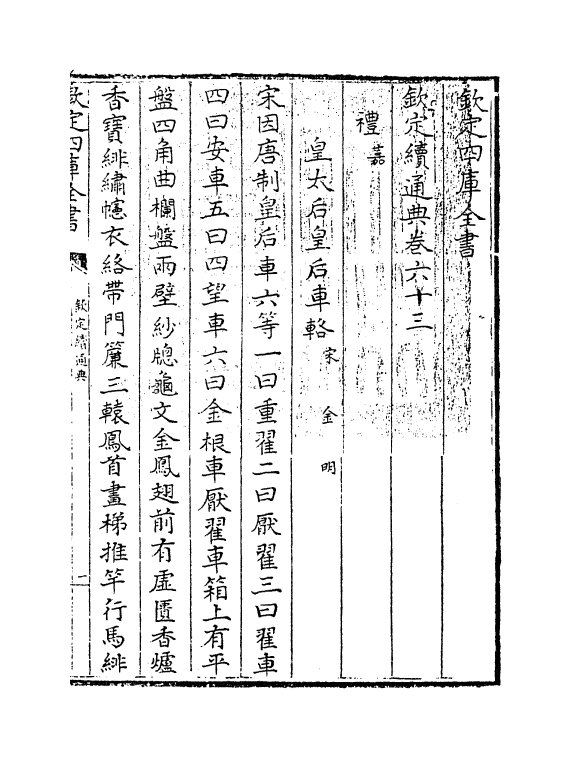 欽定四庫全書
欽定續通典卷六十三
禮嘉
皇太后皇后車輅宋 金 明
宋因唐制皇后車六等一曰重翟二曰厭翟三曰翟車
四曰安車五曰四望車六曰金根車厭翟車箱上有平
盤四角曲欄盤兩壁紗牕龜文金鳳翅前有虛匱香爐
香寶緋繡幰衣絡帶門簾三轅鳳首畫梯推竿行馬緋
欽定四庫全書
欽定續通典
一